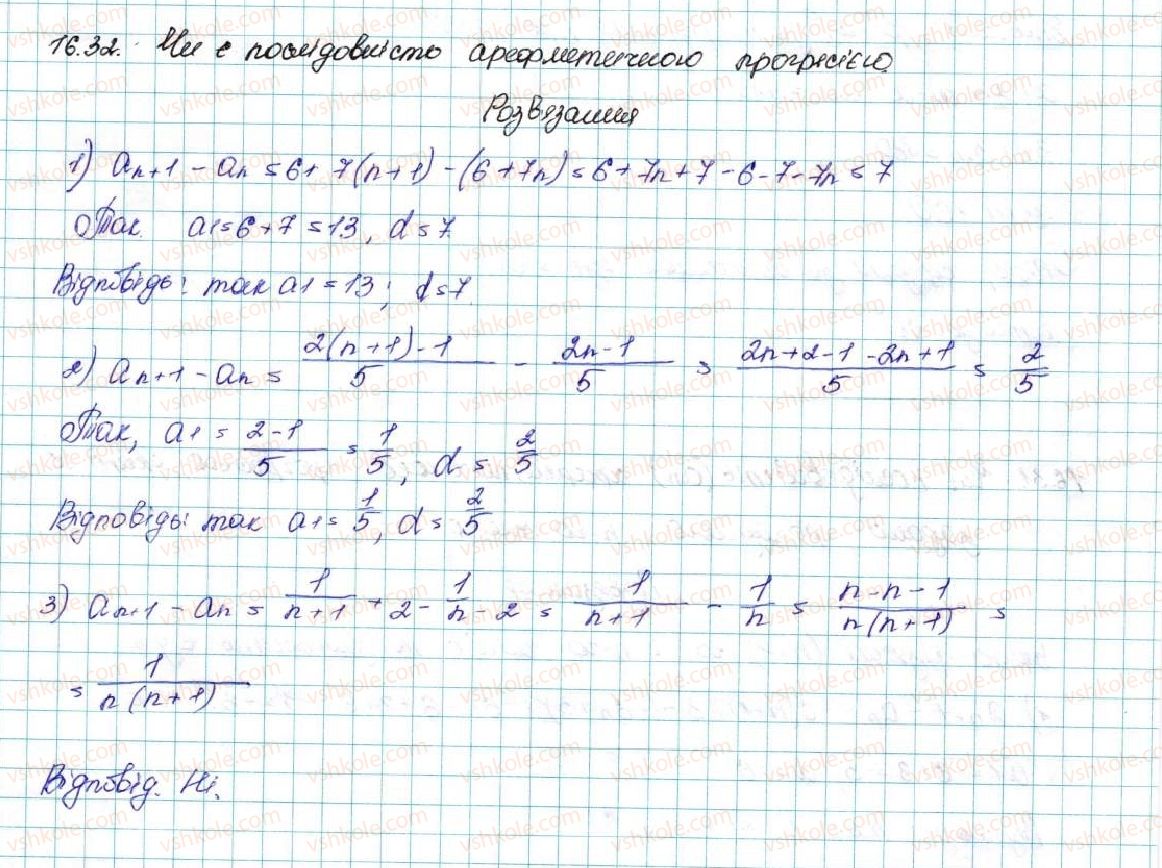 16.32. Чи є послідовність арефметичною прогресією.
Розв'язання
1) an+1 - an = 6 + 7(n+1) - (6+7n) = 6 + 7n + 7 - 6 - 7 - 7n = 7
Так. a1 = 6 + 7 = 13, d = 7
Відповідь: так a1 = 13; d = 7
2) an+1 - an = 2(n+1)-1/5 - 2n-1/5 = 2n+2-1-2n+1/5 = 2/5
Так, a1 = 2-1/5 = 1/5, d = 2/5
Відповідь: так a1 = 1/5, d = 2/5
3) an+1 - an = 1/n+1 + 2 - 1/n - 2 = 1/n+1 - 1/n = n-n-1/n(n+1) =
= 1/n(n+1)
Відповід. Ні.
vshkole.com